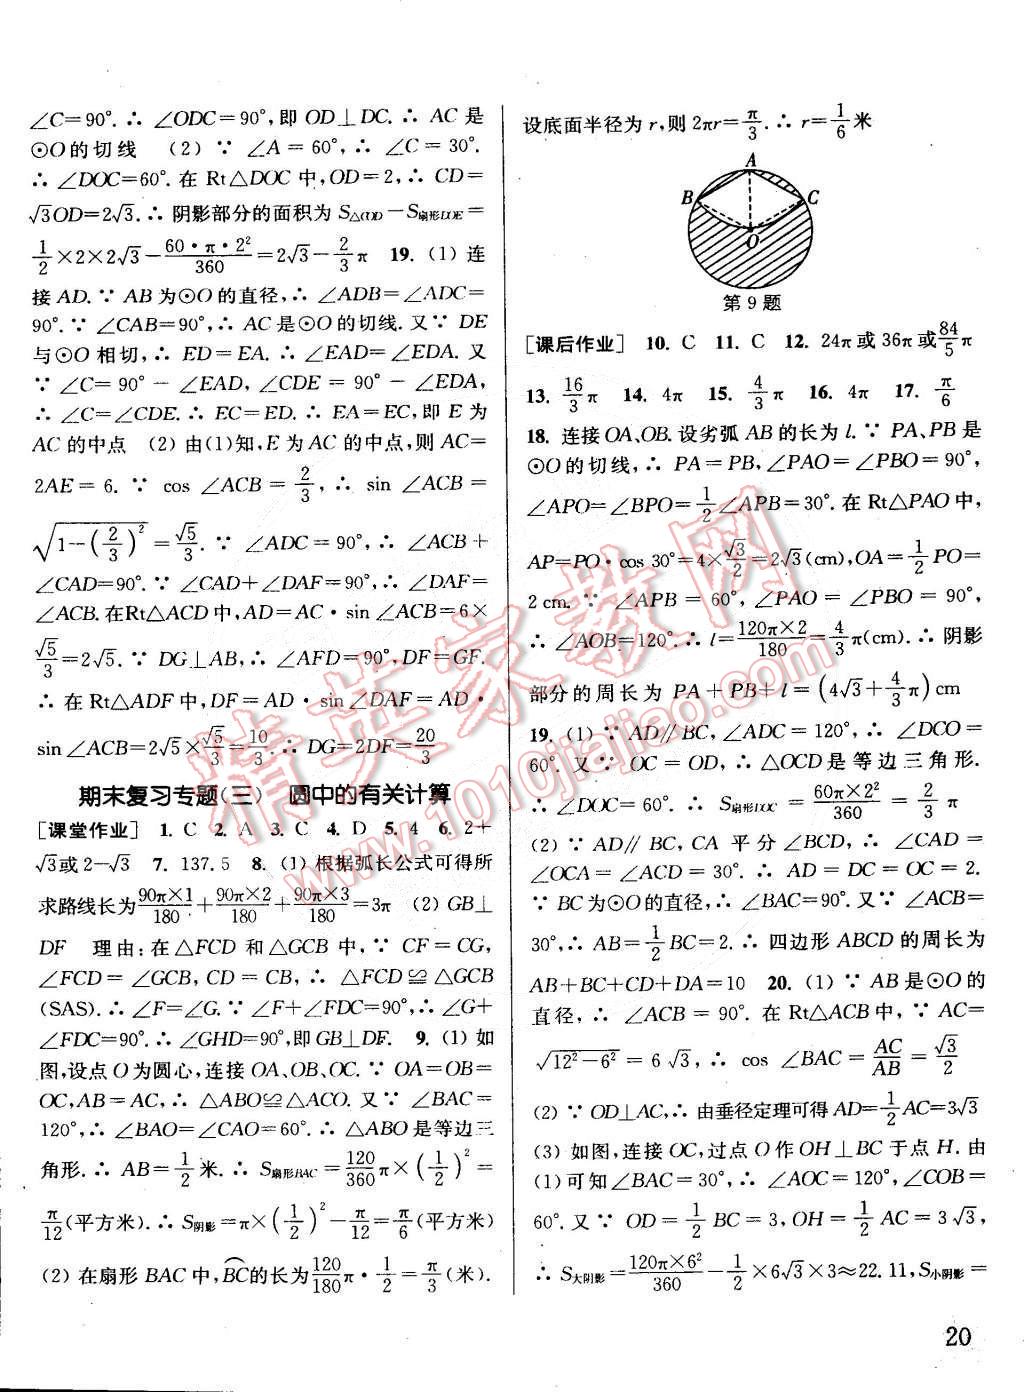 ∠C=90°.∴ ∠ODC=90°,即 OD⊥DC.∴ AC 是
⊙O 的切线 (2) ∵ ∠A = 60°,∴ ∠C = 30°.
∴ ∠DOC=60°. 在 Rt△DOC 中,OD=2,∴ CD=
√3OD=2√3.∴ 阴影部分的面积为 S△COD−S扇形DOE=
1/2×2×2√3−(60·π·2²)/360=2√3−2/3π 19. (1) 连
接 AD.∵ AB 为⊙O 的直径,∴ ∠ADB=∠ADC=
90°.∵ ∠CAB=90°,∴ AC 是⊙O 的切线.又∵ DE
与⊙O 相切,∴ ED=EA.∴ ∠EAD=∠EDA. 又
∵ ∠C= 90° − ∠EAD, ∠CDE = 90° − ∠EDA,
∴ ∠C=∠CDE.∴ EC=ED.∴ EA=EC,即 E 为
AC 的中点 (2) 由(1)知,E 为 AC 的中点,则 AC=
2AE = 6. ∵ cos ∠ACB = 2/3, ∴ sin ∠ACB =
√(1−(2/3)²) = √5/3. ∵ ∠ADC = 90°, ∴ ∠ACB +
∠CAD=90°.∵ ∠CAD+∠DAF=90°,∴ ∠DAF=
∠ACB.在Rt△ACD中,AD=AC·sin∠ACB=6×
√5/3=2√5.∵ DG⊥AB,∴ ∠AFD=90°,DF=GF.
∴ 在 Rt△ADF 中,DF= AD·sin∠DAF = AD·
sin∠ACB=2√5×√5/3=10/3.∴ DG=2DF=20/3
期末复习专题(三) 圆中的有关计算
[课堂作业] 1. C 2. A 3. C 4. D 5. 4 6. 2+
√3或2−√3 7. 137.5 8. (1) 根据弧长公式可得所
求路线长为(90π×1)/180+(90π×2)/180+(90π×3)/180=3π (2) GB⊥
DF 理由:在△FCD 和△GCB 中,∵ CF=CG,
∠FCD = ∠GCB, CD = CB, ∴ △FCD≌△GCB
(SAS).∴ ∠F=∠G.∵ ∠F+∠FDC=90°,∴ ∠G+
∠FDC=90°.∴ ∠GHD=90°,即GB⊥DF. 9. (1) 如
图,设点 O 为圆心,连接 OA、OB、OC.∵ OA=OB=
OC,AB=AC,∴ △ABO≌△ACO. 又∵ ∠BAC=
120°,∴ ∠BAO=∠CAO=60°.∴ △ABO 是等边三
角形.∴ AB=1/2米.∴ S扇形BAC=120/360π×(1/2)²=
π/12(平方米).∴ S阴影=π×(1/2)²−π/12=π/6(平方米)
(2) 在扇形 BAC 中,BC的长为120/180π·1/2=π/3(米).
设底面半径为 r,则 2πr=π/3.∴ r=1/6米
A
B
C
O
第 9 题
[课后作业] 10. C 11. C 12. 24π或36π或84/5π
13. 16/3π 14. 4π 15. 4/3π 16. 4π 17. π/6
18. 连接 OA、OB.设劣弧 AB 的长为 l.∵ PA、PB 是
⊙O 的切线,∴ PA= PB,∠PAO=∠PBO= 90°,
∠APO=∠BPO=1/2∠APB=30°.在 Rt△PAO 中,
AP=PO·cos 30°=4×√3/2=2√3(cm),OA=1/2PO=
2 cm. ∵ ∠APB = 60°, ∠PAO = ∠PBO = 90°,
∴ ∠AOB=120°.∴ l=(120π×2)/180=4/3π(cm).∴ 阴影
部分的周长为 PA+PB+l=(4√3+4/3π)cm
19. (1) ∵ AD∥BC,∠ADC=120°,∴ ∠DCO=
60°. 又∵ OC = OD,∴ △OCD 是等边三角形.
∴ ∠DOC= 60°.∴ S扇形DOC = (60π×2²)/360 = 2/3π
(2) ∵ AD∥BC, CA 平分∠BCD, ∴ ∠CAD =
∠OCA = ∠ACD = 30°.∴ AD = DC = OC = 2.
∵ BC 为⊙O 的直径,∴ ∠BAC=90°.又∵ ∠ACB=
30°,∴ AB=1/2BC=2.∴ 四边形 ABCD 的周长为
AB+BC+CD+DA=10 20. (1) ∵ AB 是⊙O 的
直径,∴ ∠ACB = 90°. 在 Rt△ACB 中,∵ AC=
√(12²−6²) = 6√3, ∴ cos ∠BAC = AC/AB = √3/2
(2) ∵ OD⊥AC,∴ 由垂径定理可得 AD=1/2AC=3√3
(3) 如图,连接 OC,过点 O 作 OH⊥BC 于点 H. 由
(1)可知∠BAC=30°,∴ ∠AOC=120°,∠COB=
60°. 又∵ OD = 1/2 BC = 3, OH = 1/2 AC = 3√3,
∴ S大阴影=(120π×6²)/360−1/2×6√3×3≈22.11,S小阴影=
20
精英家教网
www.1010jiajiao.com